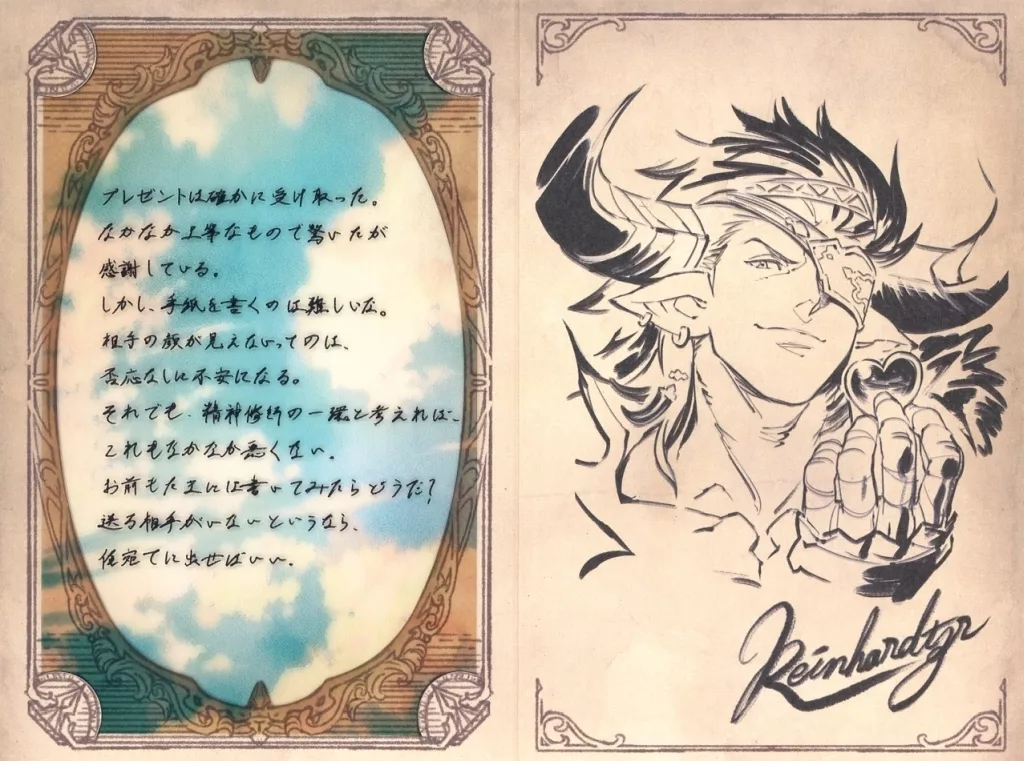 プレゼントは確かに受け取った。
なかなか上等なもので驚いたが
感謝している。
しかし、手紙を書くのは難しいな。
相手の顔が見えないってのは、
否応なしに不安になる。
それでも、精神修行の一環と考えれば、
これもなかなか悪くない。
お前もたまには書いてみたらどうだ？
送る相手がいないというなら、
俺宛てに出せばいい。
Reinhardtzar